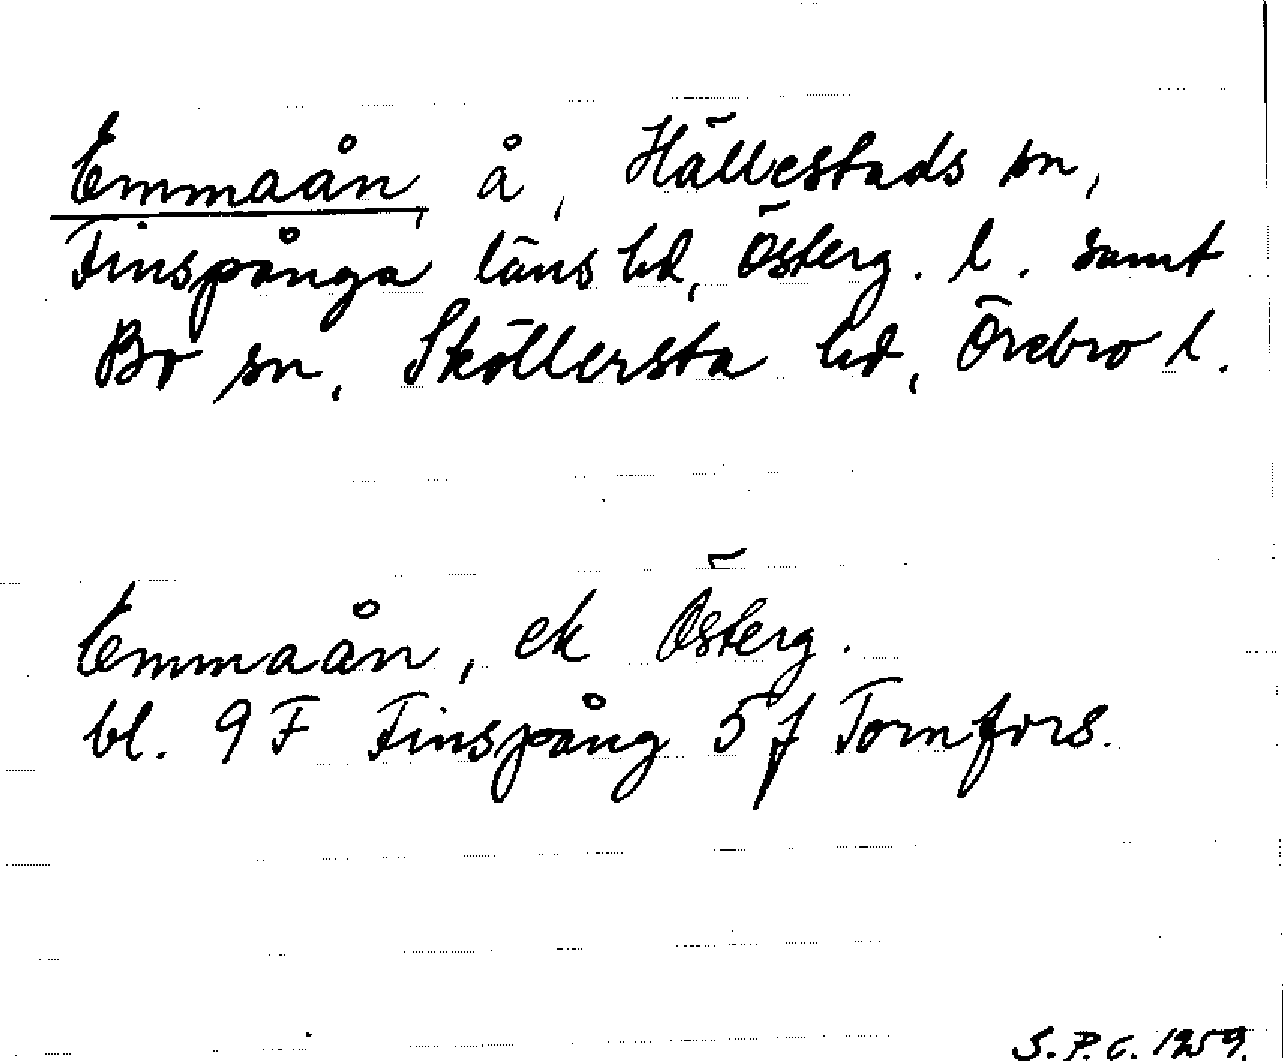 Emmaån, å, Hällestads sn,
Finspånga läns hd, Österg. l. samt
Bo sn, Sköllersta hd, Örebro l.
Emmaån, ek Österg.
bl. 9 F Finspång 5 f Tornfors.
S.P.C. 1959.